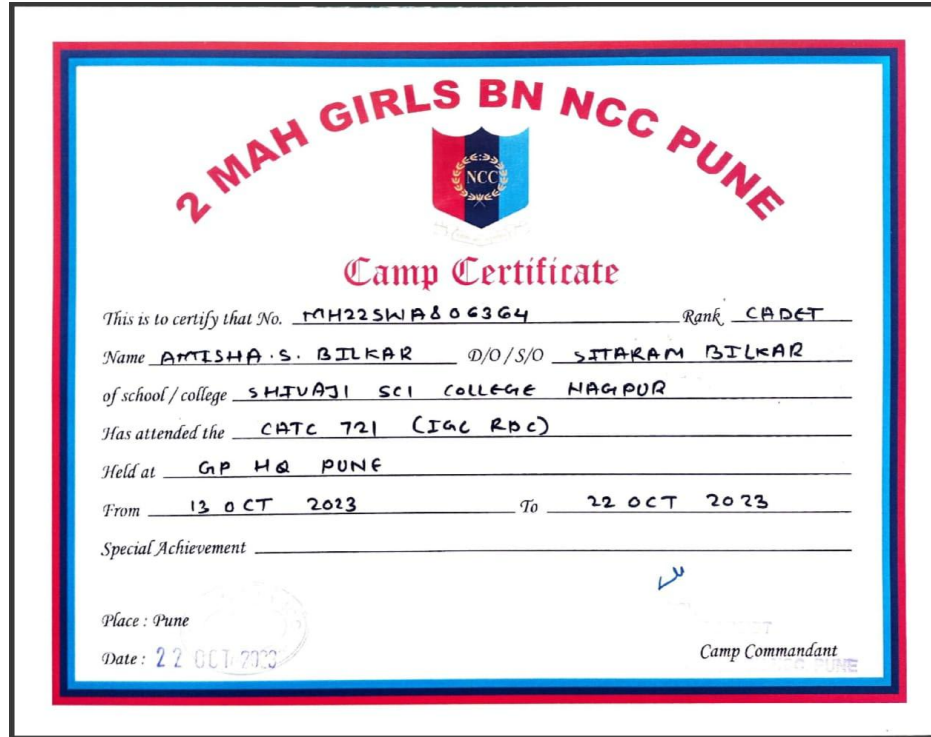 2 MAH GIRLS BN NCC PUNE
NCC
Camp Certificate
This is to certify that No. MH22SWA806364 Rank CADET
Name AMISHA.S. BILKAR D/O / S/O SITARAM BILKAR
of school / college SHIVAJI SCI COLLEGE NAGPUR
Has attended the CATC 721 (IGC RDC)
Held at GP HQ PUNE
From 13 OCT 2023 To 22 OCT 2023
Special Achievement
Place : Pune
Date : 22 OCT 2023
Camp Commandant
NCC PUNE